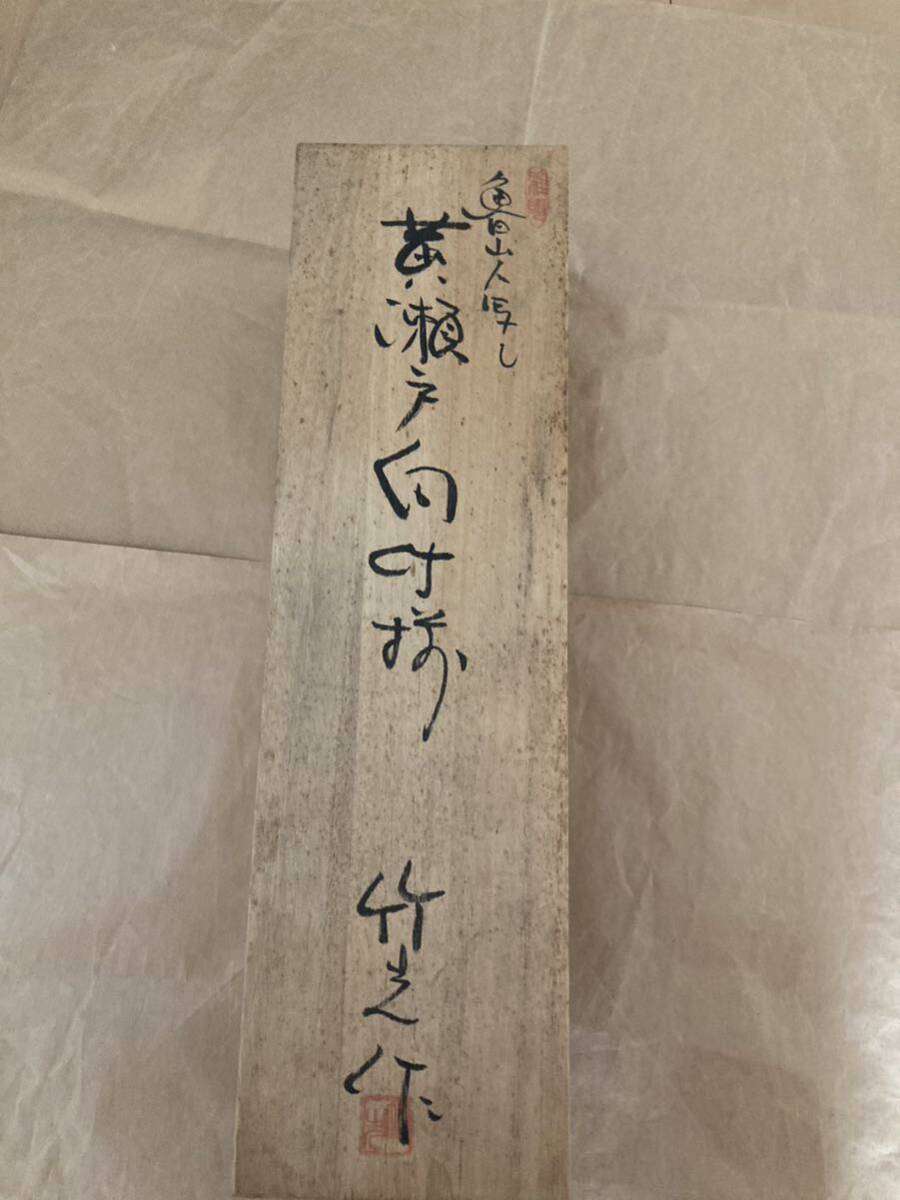 魯山人写し
黄瀬戸向付揃
竹之作